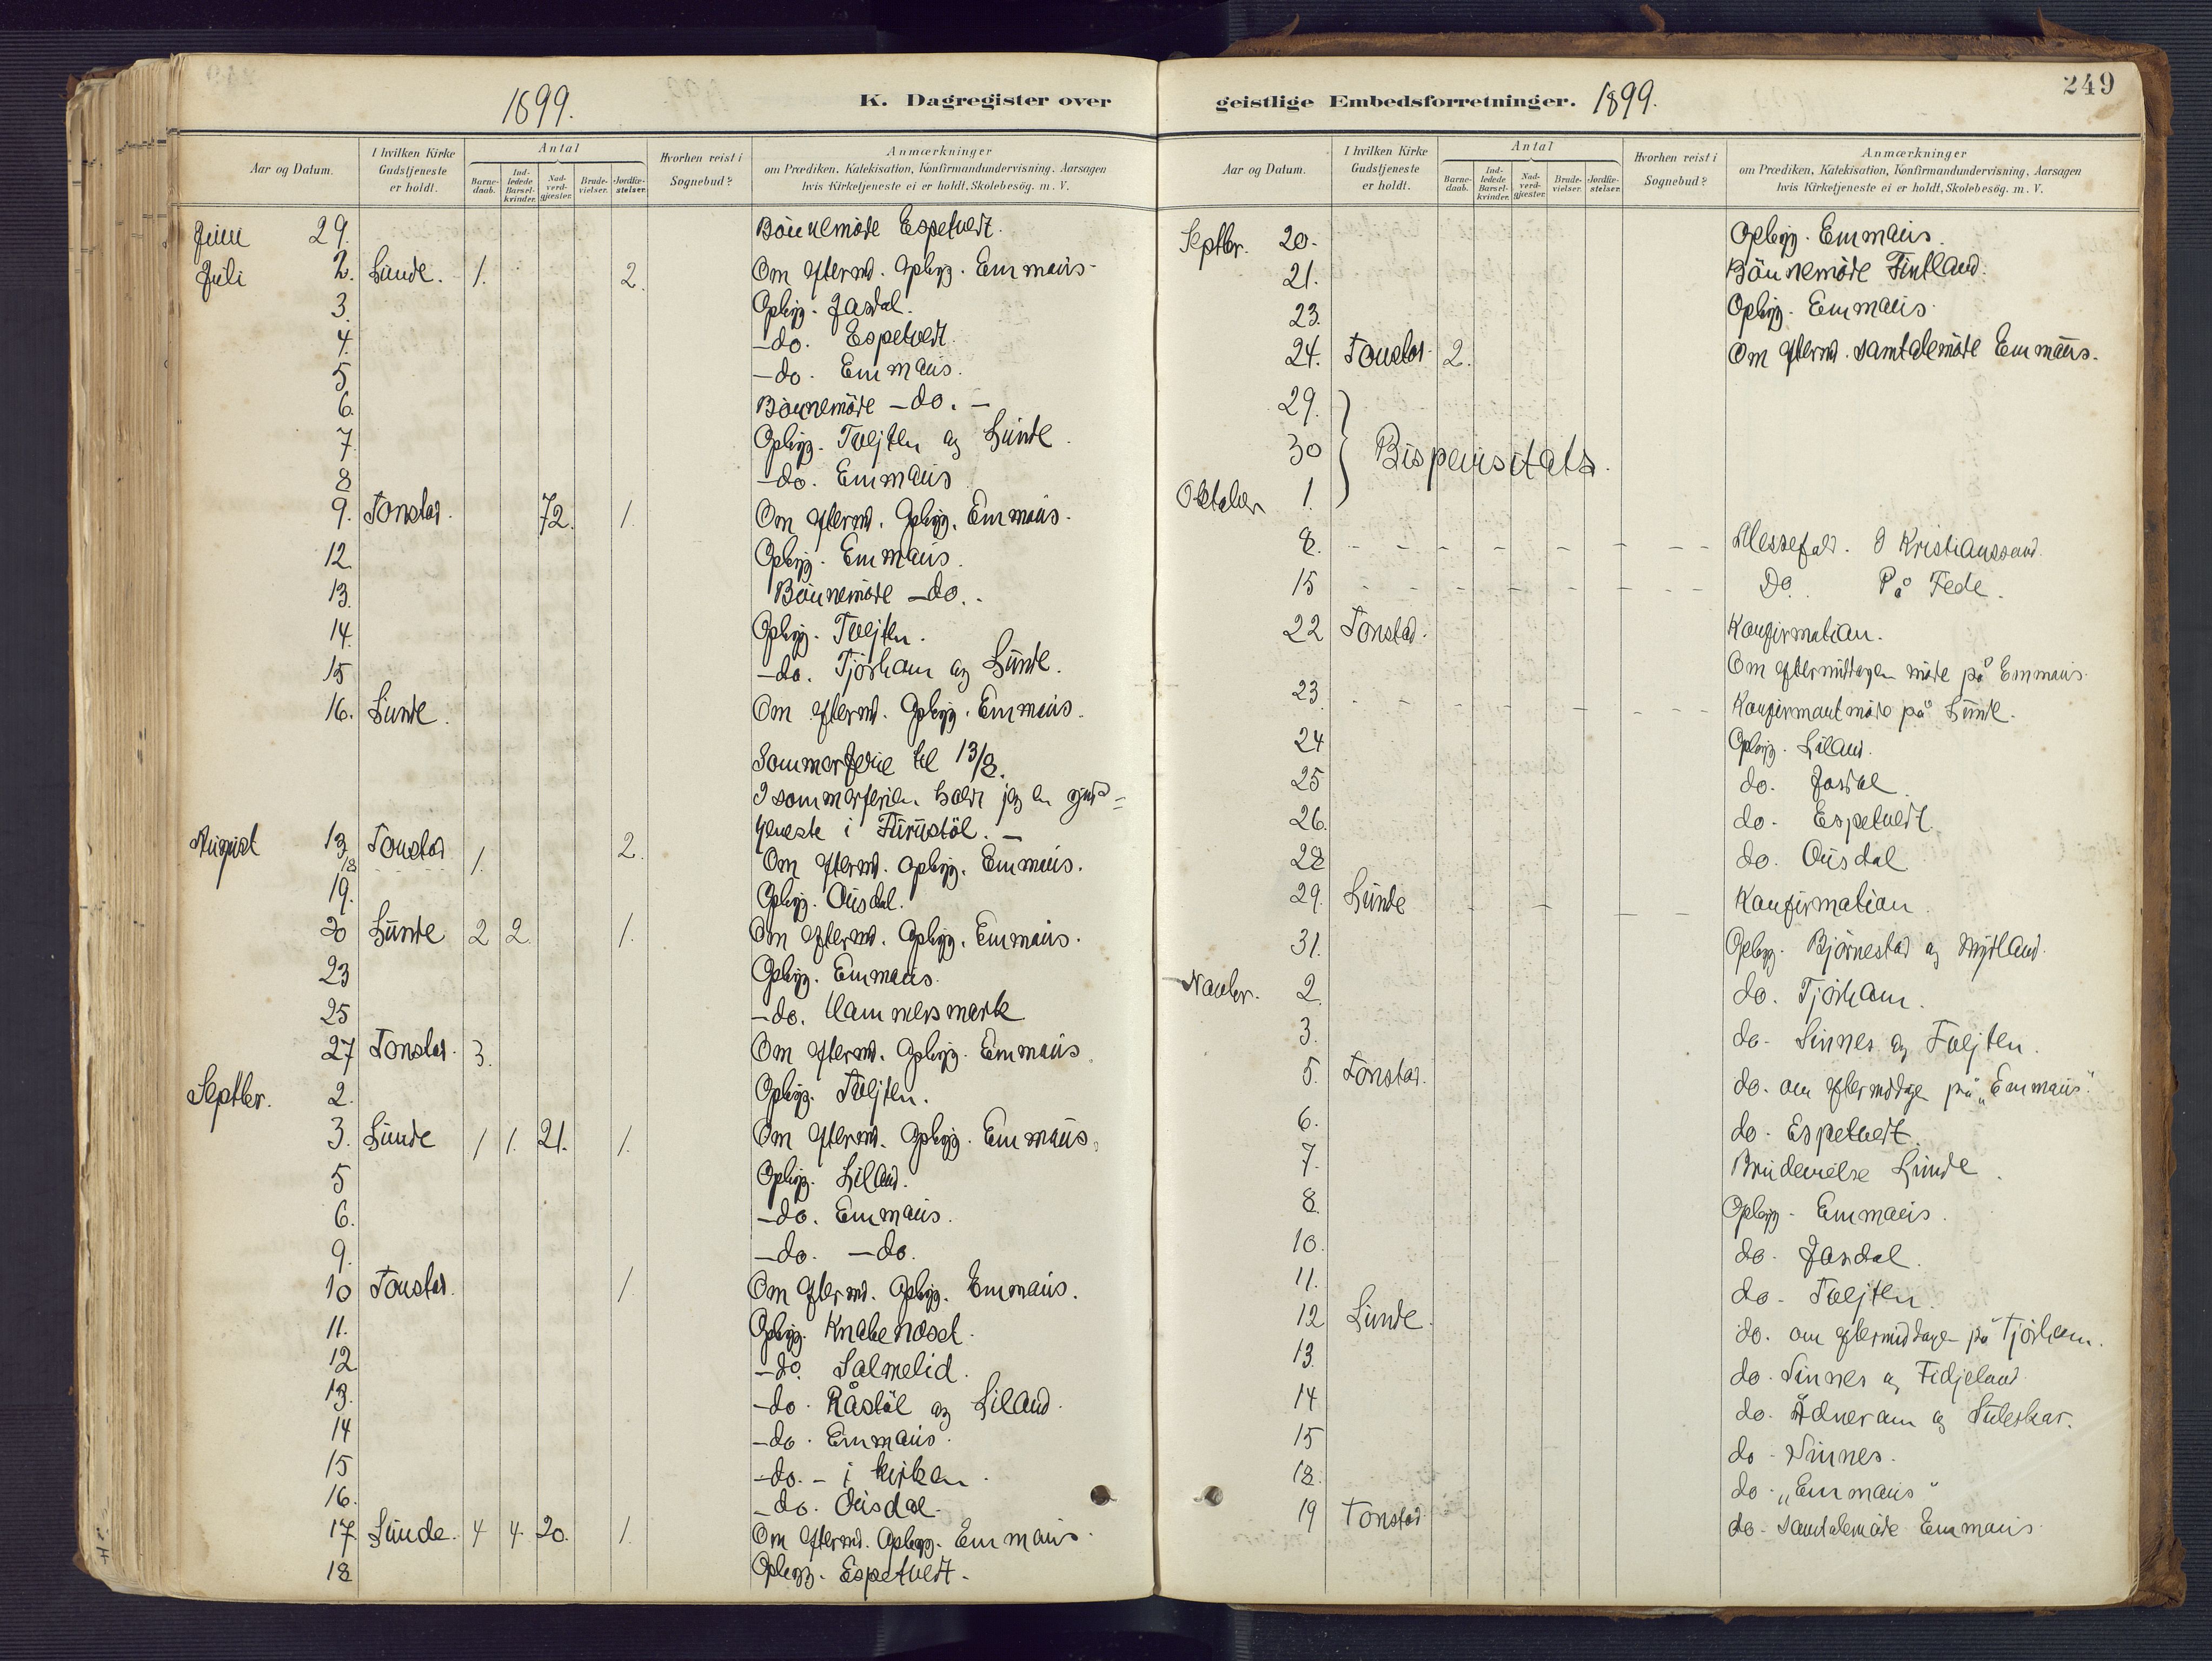 1899.
K. Dagregister over
Aar og Datum.
I hvilken Kirke Gudstjeneste er holdt.
Antal
Barnedaab.
Indledede Barselkvinder.
Nadverdgjæster.
Brudevielser.
Jordfæstelser.
Hvorhen reist i Sognebud?
Anmærkninger
om Prædiken, Katekisation, Konfirmandundervisning. Aarsagen
hvis Kirketjeneste ei er holdt, Skolebesøg. m. V.
Juni 29. Bönnemöde Espetvedt.
Juli 2. Lunde. 1. 2. Om efterm. Opbyg. Emmaus.
3. Opbyg. Josdal.
4. -do. Espetvedt.
5. -do. Emmaus.
6. Bönnemöde -do. -
7. Opbyg. Tveiten og Lunde.
8 -do. Emmaus
9. Tonstad. 72. 1. Om efterm. Opbyg. Emmaus.
12. Opbyg. Emmaus.
13. Bönnemöde -do..
14. Opbyg. Tveiten.
15 -do. Tjörham og Lunde.
16. Lunde. Om efterm. Opbyg. Emmaus.
Sommerferie til 13/8.
I sommerferien holdt jeg en gud=
tjeneste i Furustöl. -
August 13 Tonstad 1. 2. Om efterm. opbyg. Emmaus.
18
19. Opbyg. Ousdal.
20 Lunde 2 2. 1. Om efterm. Opbyg. Emmaus.
23 Opbyg. Emmaus.
25 -do. Hammersmark
27 Tonstad. 3. Om efterm. Opbyg. Emmaus.
Septbr. 2. Opbyg. Tveiten.
3. Lunde 1 1. 21. 1. Om efterm. Opbyg. Emmaus.
5 Opbyg. Liland.
6. -do. Emmaus.
9. -do. -do.
10 Tonstad. 1. Om efterm. Opbyg. Emmaus.
11. Opbyg. Knabenoset.
12 -do. Salmelid.
13. -do. Råstöl og Liland.
14 -do. Emmaus.
15 -do. - i kirken.
16. -do. Ousdal.
17. Lunde. 4 4. 20. 1. Om efterm. Opbyg. Emmaus.
18 Opbyg. Espetvedt.
geistlige Embedsforretninger. 1899.
249
Aar og Datum.
I hvilken Kirke Gudstjeneste er holdt.
Antal
Barnedaab.
Indledede Barselkvinder.
Nadverdgjæster.
Brudevielser.
Jordfæstelser.
Hvorhen reist i Sognebud?
Anmærkninger
om Prædiken, Katekisation, Konfirmandundervisning, Aarsagen
hvis Kirketjeneste ei er holdt, Skolebesøg. m. V.
Septbr. 20. Opbyg. Emmaus.
21. Bönnemöde Fintland.
23. Opbyg. Emmaus.
24. Tonstad. 2. Om efterm. samtalemöde Emmaus.
29.
30 Bispevisitats.
Oktober 1.
8. Messefald. I Kristianssand.
15 Do. På Fede.
22 Tonstad. Konfirmation.
Om eftermiddagen möde på Emmaus.
23. Konfirmantmöde på Lunde.
24 Opbyg. Liland.
25 do. Josdal.
26. do. Espetvedt.
28 do. Ousdal
29. Lunde Konfirmation.
31. Opbyg. Bjørnestad og Mydland.
Novbr. 2. do. Tjørham.
3. do. Sinnes og Tveiten.
5. Tonstad. do. om eftermiddagen på "Emmaus".
6. do. Espetvedt.
7. Brudevielse Lunde.
8. Opbyg. Emmaus.
10. do. Josdal.
11. do. Tveiten.
12 Lunde. do. om eftermiddagen på Tjörham.
13. do. Sinnes og Fidjeland.
14 do. Ådneram og Suleskar.
15 do. Sinnes.
18. do. "Emmaus"
19 Tonstad do. Samtalemöde Emmaus.